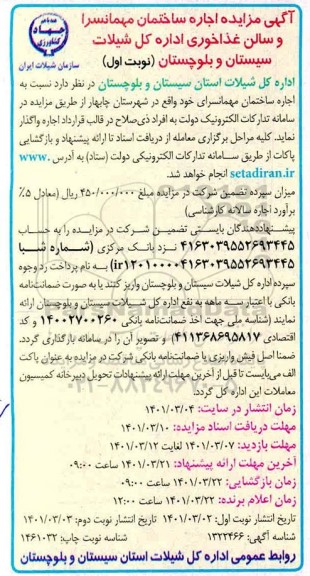 آگهی مزایده اجاره ساختمان مهمانسرا
و سالن غذاخوری اداره کل شیلات
سیستان و بلوچستان (نوبت اول)
جهاد
کشاورزی
سازمان شیلات ایران
اداره کل شیلات استان سیستان و بلوچستان در نظر دارد نسبت به
اجاره ساختمان مهمانسرای خود واقع در شهرستان چابهار از طریق مزایده در
سامانه تدارکات الکترونیک دولت به افراد ذی‌صلاح در قالب قرارداد اجاره واگذار
نماید. کلیه مراحل برگزاری معامله از دریافت اسناد تا ارائه پیشنهاد و بازگشایی
پاکات از طریق سامانه تدارکات الکترونیکی دولت (ستاد) به آدرس www.
setadiran.ir انجام خواهد شد.
میزان سپرده تضمین شرکت در مزایده مبلغ ۴۵۰/۰۰۰/۰۰۰ ریال (معادل ۵٪
برآورد اجاره سالانه کارشناسی)
پیشنهاددهندگان بایستی تضمین شرکت در مزایده را به حساب
۴۱۶۳۰۳۹۵۵۲۶۹۳۴۴۵ نزد بانک مرکزی (شماره شبا
ir۱۲۰۱۰۰۰۰۴۱۶۳۰۳۹۵۵۲۶۹۳۴۴۵) به نام پرداخت رد وجوه
سپرده اداره کل شیلات سیستان و بلوچستان واریز کنند یا به صورت ضمانت‌نامه
بانکی با اعتبار سه ماهه به نفع اداره کل شیلات سیستان و بلوچستان ارائه
نمایند (شناسه ملی جهت اخذ ضمانت‌نامه بانکی ۱۴۰۰۲۷۰۰۲۶۰ و کد
اقتصادی ۴۱۱۳۶۸۶۹۵۸۱۷) و تصویر آن را در سامانه بارگذاری گردد.
ضمنا اصل فیش واریزی یا ضمانت‌نامه بانکی شرکت در مزایده به عنوان پاکت
الف می‌بایست تا قبل از آخرین مهلت ارائه پیشنهادات تحویل دبیرخانه کمیسیون
معاملات این اداره کل گردد.
زمان انتشار در سایت: ۱۴۰۱/۰۳/۰۴
مهلت دریافت اسناد مزایده: ۱۴۰۱/۰۳/۱۰
مهلت بازدید: ۱۴۰۱/۰۳/۰۷ لغایت ۱۴۰۱/۰۳/۱۲
آخرین مهلت ارائه پیشنهاد: ۱۴۰۱/۰۳/۲۱ ساعت ۰۹:۰۰
زمان بازگشایی: ۱۴۰۱/۰۳/۲۲ ساعت ۰۹:۰۰
زمان اعلام برنده: ۱۴۰۱/۰۳/۲۲ ساعت ۱۲:۰۰
تاریخ انتشار نوبت اول: ۱۴۰۱/۰۳/۰۲ تاریخ انتشار نوبت دوم: ۱۴۰۱/۰۳/۰۳
شناسه آگهی: ۱۳۲۲۴۶۶ شناسه نوبت چاپ: ۱۴۶۱۰۳۲
روابط عمومی اداره کل شیلات استان سیستان و بلوچستان